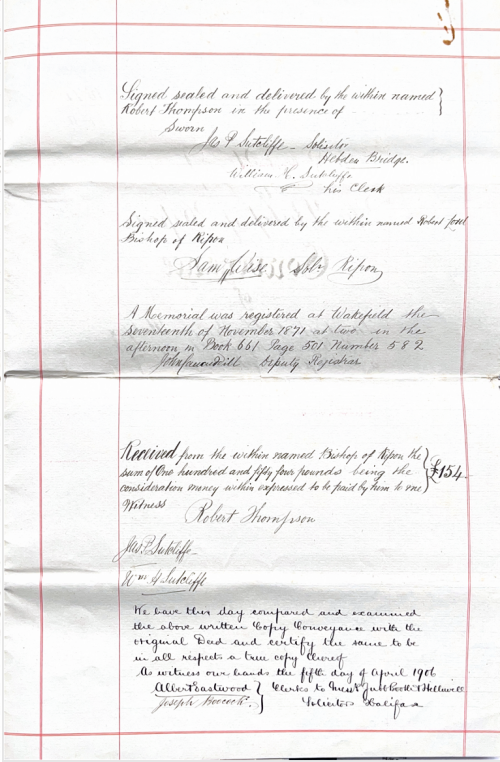 Signed sealed and delivered by the within named }
Robert Thompson in the presence of
Sworn
Jas P Sutcliffe Solicitor
Hebden Bridge.
William H. Sutcliffe
his Clerk
Signed sealed and delivered by the within named Robert
Bishop of Ripon
Solr Ripon
A Memorial was registered at Wakefield the
seventeenth of November 1871 at two in the
afternoon in Book 661 Page 501 Number 582
Deputy Registrar
Received from the within named Bishop of Ripon the
sum of One hundred and fifty four pounds being the } £154
consideration money within expressed to be paid by him to me
Witness
Robert Thompson
Jas P Sutcliffe
Wm H Sutcliffe
We have this day compared and examined
the above written Copy Conveyance with the
original Deed and certify the same to be
in all respects a true copy thereof
As witness our hands the fifth day of April 1906
Albert Eastwood } Clerks to Messrs Helliwell
Joseph Boocock } Solicitors Halifax